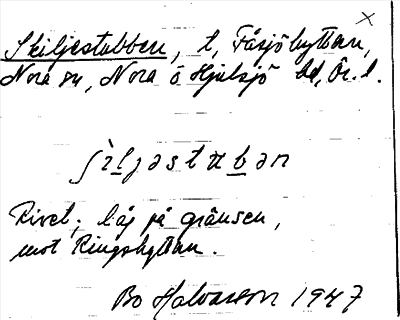 Skiljestubben, t, Fåsjöhyttan,
Nora sn, Nora o Hjulsjö bd, Ör. l.
ʃìljəstubən
Rivet; låg på gränsen,
mot Ringshyttan.
Bo Halvarsson 1947